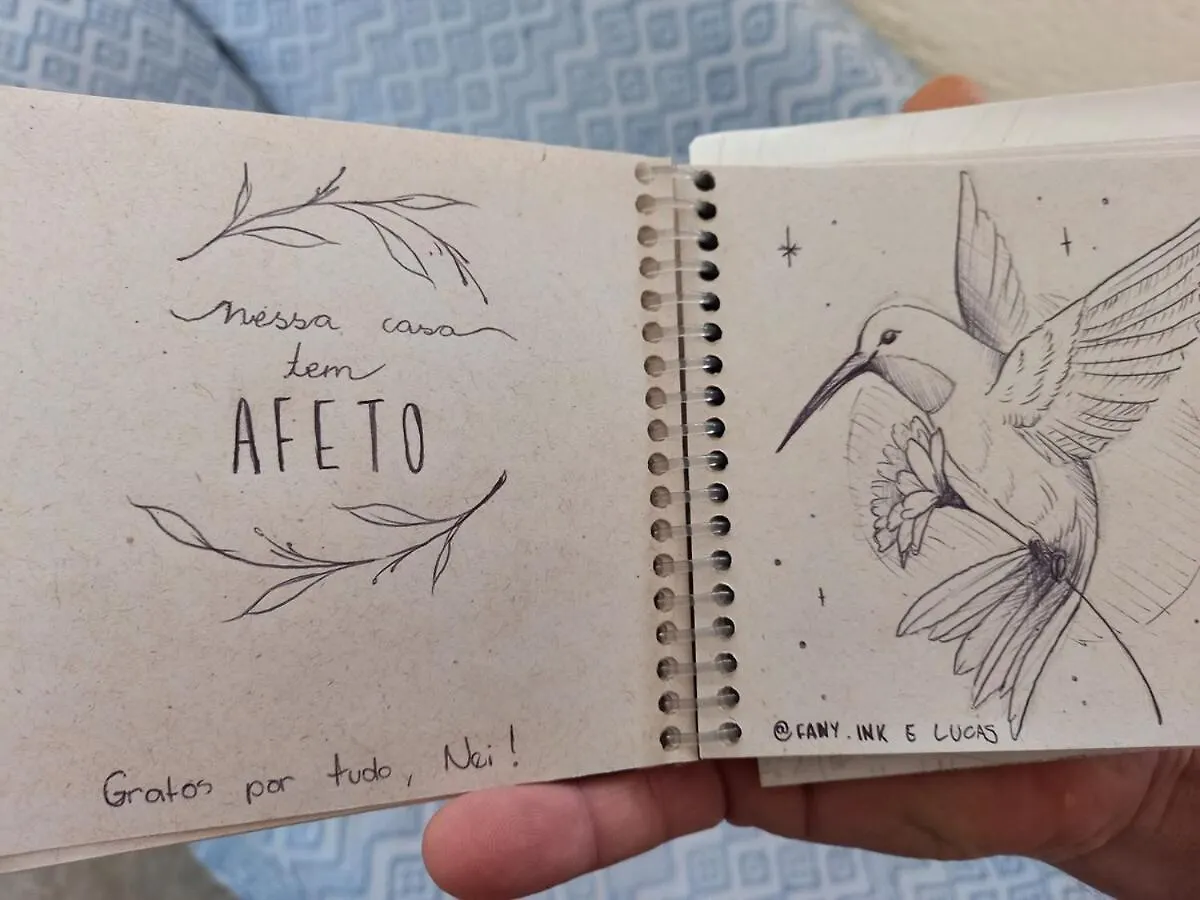 Nessa casa
tem
AFETO
Gratos por tudo, Nei!
@FANY.INK E LUCAS